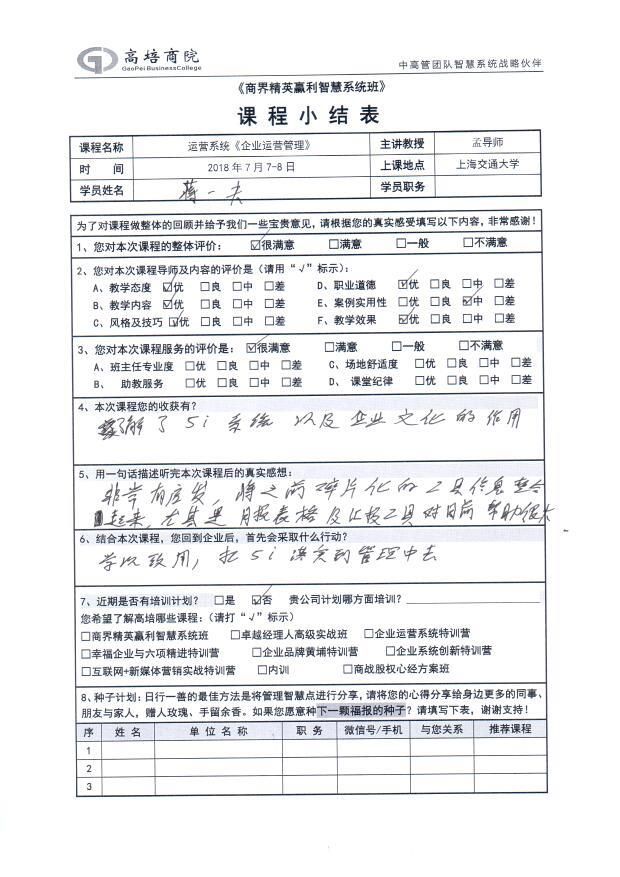 高培商院
GaoPei BusinessCollege
中高管团队智慧系统战略伙伴
《商界精英赢利智慧系统班》
课程小结表
课程名称 运营系统《企业运营管理》 主讲教授 孟导师
时 间 2018年7月7-8日 上课地点 上海交通大学
学员姓名 蒋一夫 学员职务
为了对课程做整体的回顾并给予我们一些宝贵意见，请根据您的真实感受填写以下内容，非常感谢！
1、您对本次课程的整体评价： ☑很满意 □满意 □一般 □不满意
2、您对本次课程导师及内容的评价是（请用“√”标示）：
A、教学态度 ☑优 □良 □中 □差 D、职业道德 ☑优 □良 □中 □差
B、教学内容 ☑优 □良 □中 □差 E、案例实用性 □优 □良 ☑中 □差
C、风格及技巧 ☑优 □良 □中 □差 F、教学效果 ☑优 □良 □中 □差
3、您对本次课程服务的评价是： ☑很满意 □满意 □一般 □不满意
A、班主任专业度 □优 □良 □中 □差 C、场地舒适度 □优 □良 □中 □差
B、 助教服务 □优 □良 □中 □差 D、 课堂纪律 □优 □良 □中 □差
4、本次课程您的收获有？
了解了5i系统以及企业文化的作用
5、用一句话描述听完本次课程后的真实感想：
非常有启发，将之前碎片化的工具信息整合
起来，尤其是月报表格及比较工具对目前帮助很大
6、结合本次课程，您回到企业后，首先会采取什么行动？
学以致用，把5i落实到管理中去
7、近期是否有培训计划？ □是 ☑否 贵公司计划哪方面培训？
您希望了解高培哪些课程：（请打“√”标示）
□商界精英赢利智慧系统班 □卓越经理人高级实战班 □企业运营系统特训营
□幸福企业与六项精进特训营 □企业品牌黄埔特训营 □企业系统创新特训营
□互联网+新媒体营销实战特训营 □内训 □商战股权心经方案班
8、种子计划：日行一善的最佳方法是将管理智慧点进行分享，请将您的心得分享给身边更多的同事、
朋友与家人，赠人玫瑰、手留余香。如果您愿意种下一颗福报的种子？请填写下表，谢谢支持！
序 姓名 单位名称 职务 微信号/手机 与您关系 推荐课程
1
2
3